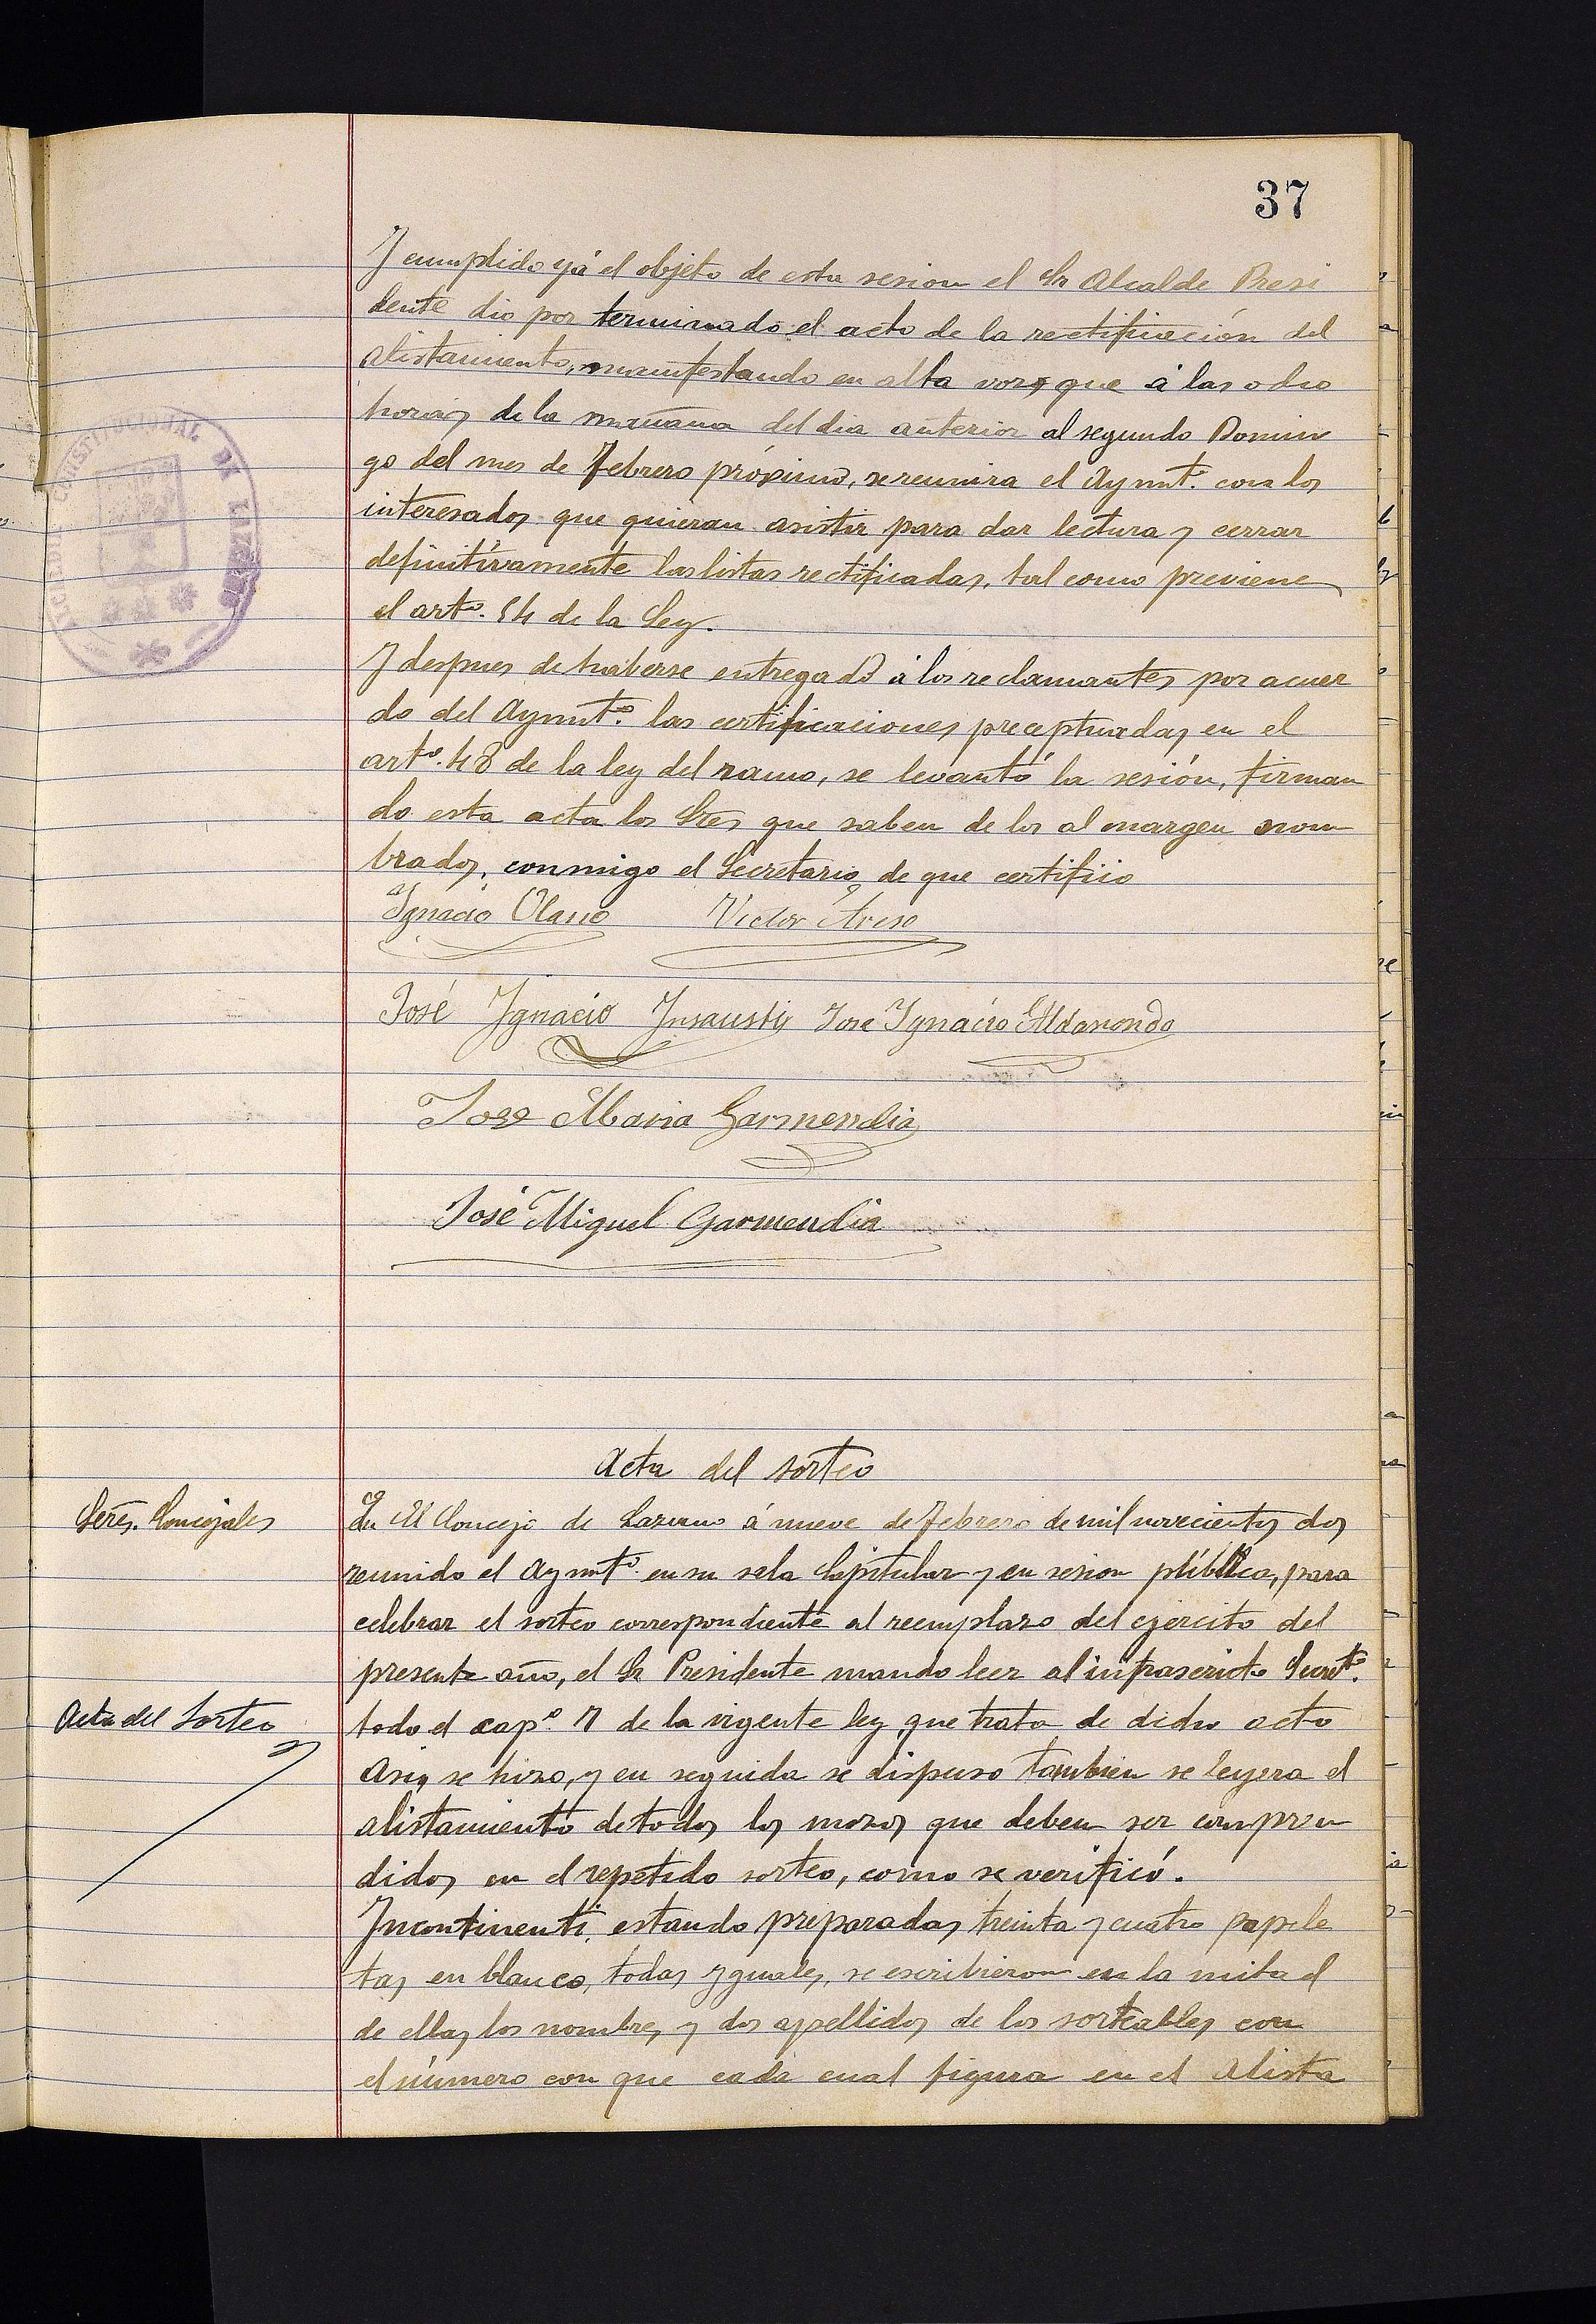 37
Y cumplido ya el objeto de esta sesion el Sr Alcalde Presi
dente dio por terminado el acto de la rectificación del
alistamiento, manifestando en alta voz, que á las ocho
horas de la mañana del dia anterior al segundo Domin
go del mes de Febrero próximo, se reunira el Aymt.º con los
interesados que quieran asistir para dar lectura y cerrar
definitivamente las listas rectificadas, tal como previene
el artº. 54 de la Ley.
Y despues de haberse entregado á los reclamantes por acuer
do del Aymtº. las certificaciones preceptuadas en el
artº. 48 de la ley del ramo, se levantó la sesión, firman
do esta acta los Sres que saben de los al margen nom
brados, conmigo el Secretario de que certifico
Ignacio Olano Victor Areso
José Ygnacio Insausti Jose Ygnacio Aldasondo
Jose Maria Garmendia
José Miguel Garmendia
ALCALDIA CONSTITUCIONAL DE
Acta del sorteo
Seres. Concejales
En El Concejo de Lazcano á nueve de Febrero de mil novecientos dos
reunido el Aymtº. en su sala Capitular y en sesion pública, para
celebrar el sorteo correspondiente al reemplazo del ejército del
presente año, el Sr Presidente mando leer al infrascrito Secretº.
Acta del Sorteo
todo el capº. 7 de la vigente ley que trata de dicho acto
Asi, se hizo, y en seguida se dispuso tambien se leyera el
alistamiento de todos los mozos que deben ser compren
didos en el repetido sorteo, como se verificó.
Incontinenti, estando preparadas treinta y cuatro papele
tas en blanco, todas yguales, se escribieron en la mitad
de ellas los nombres y dos apellidos de los sorteables con
el número con que cada cual figura en el alista